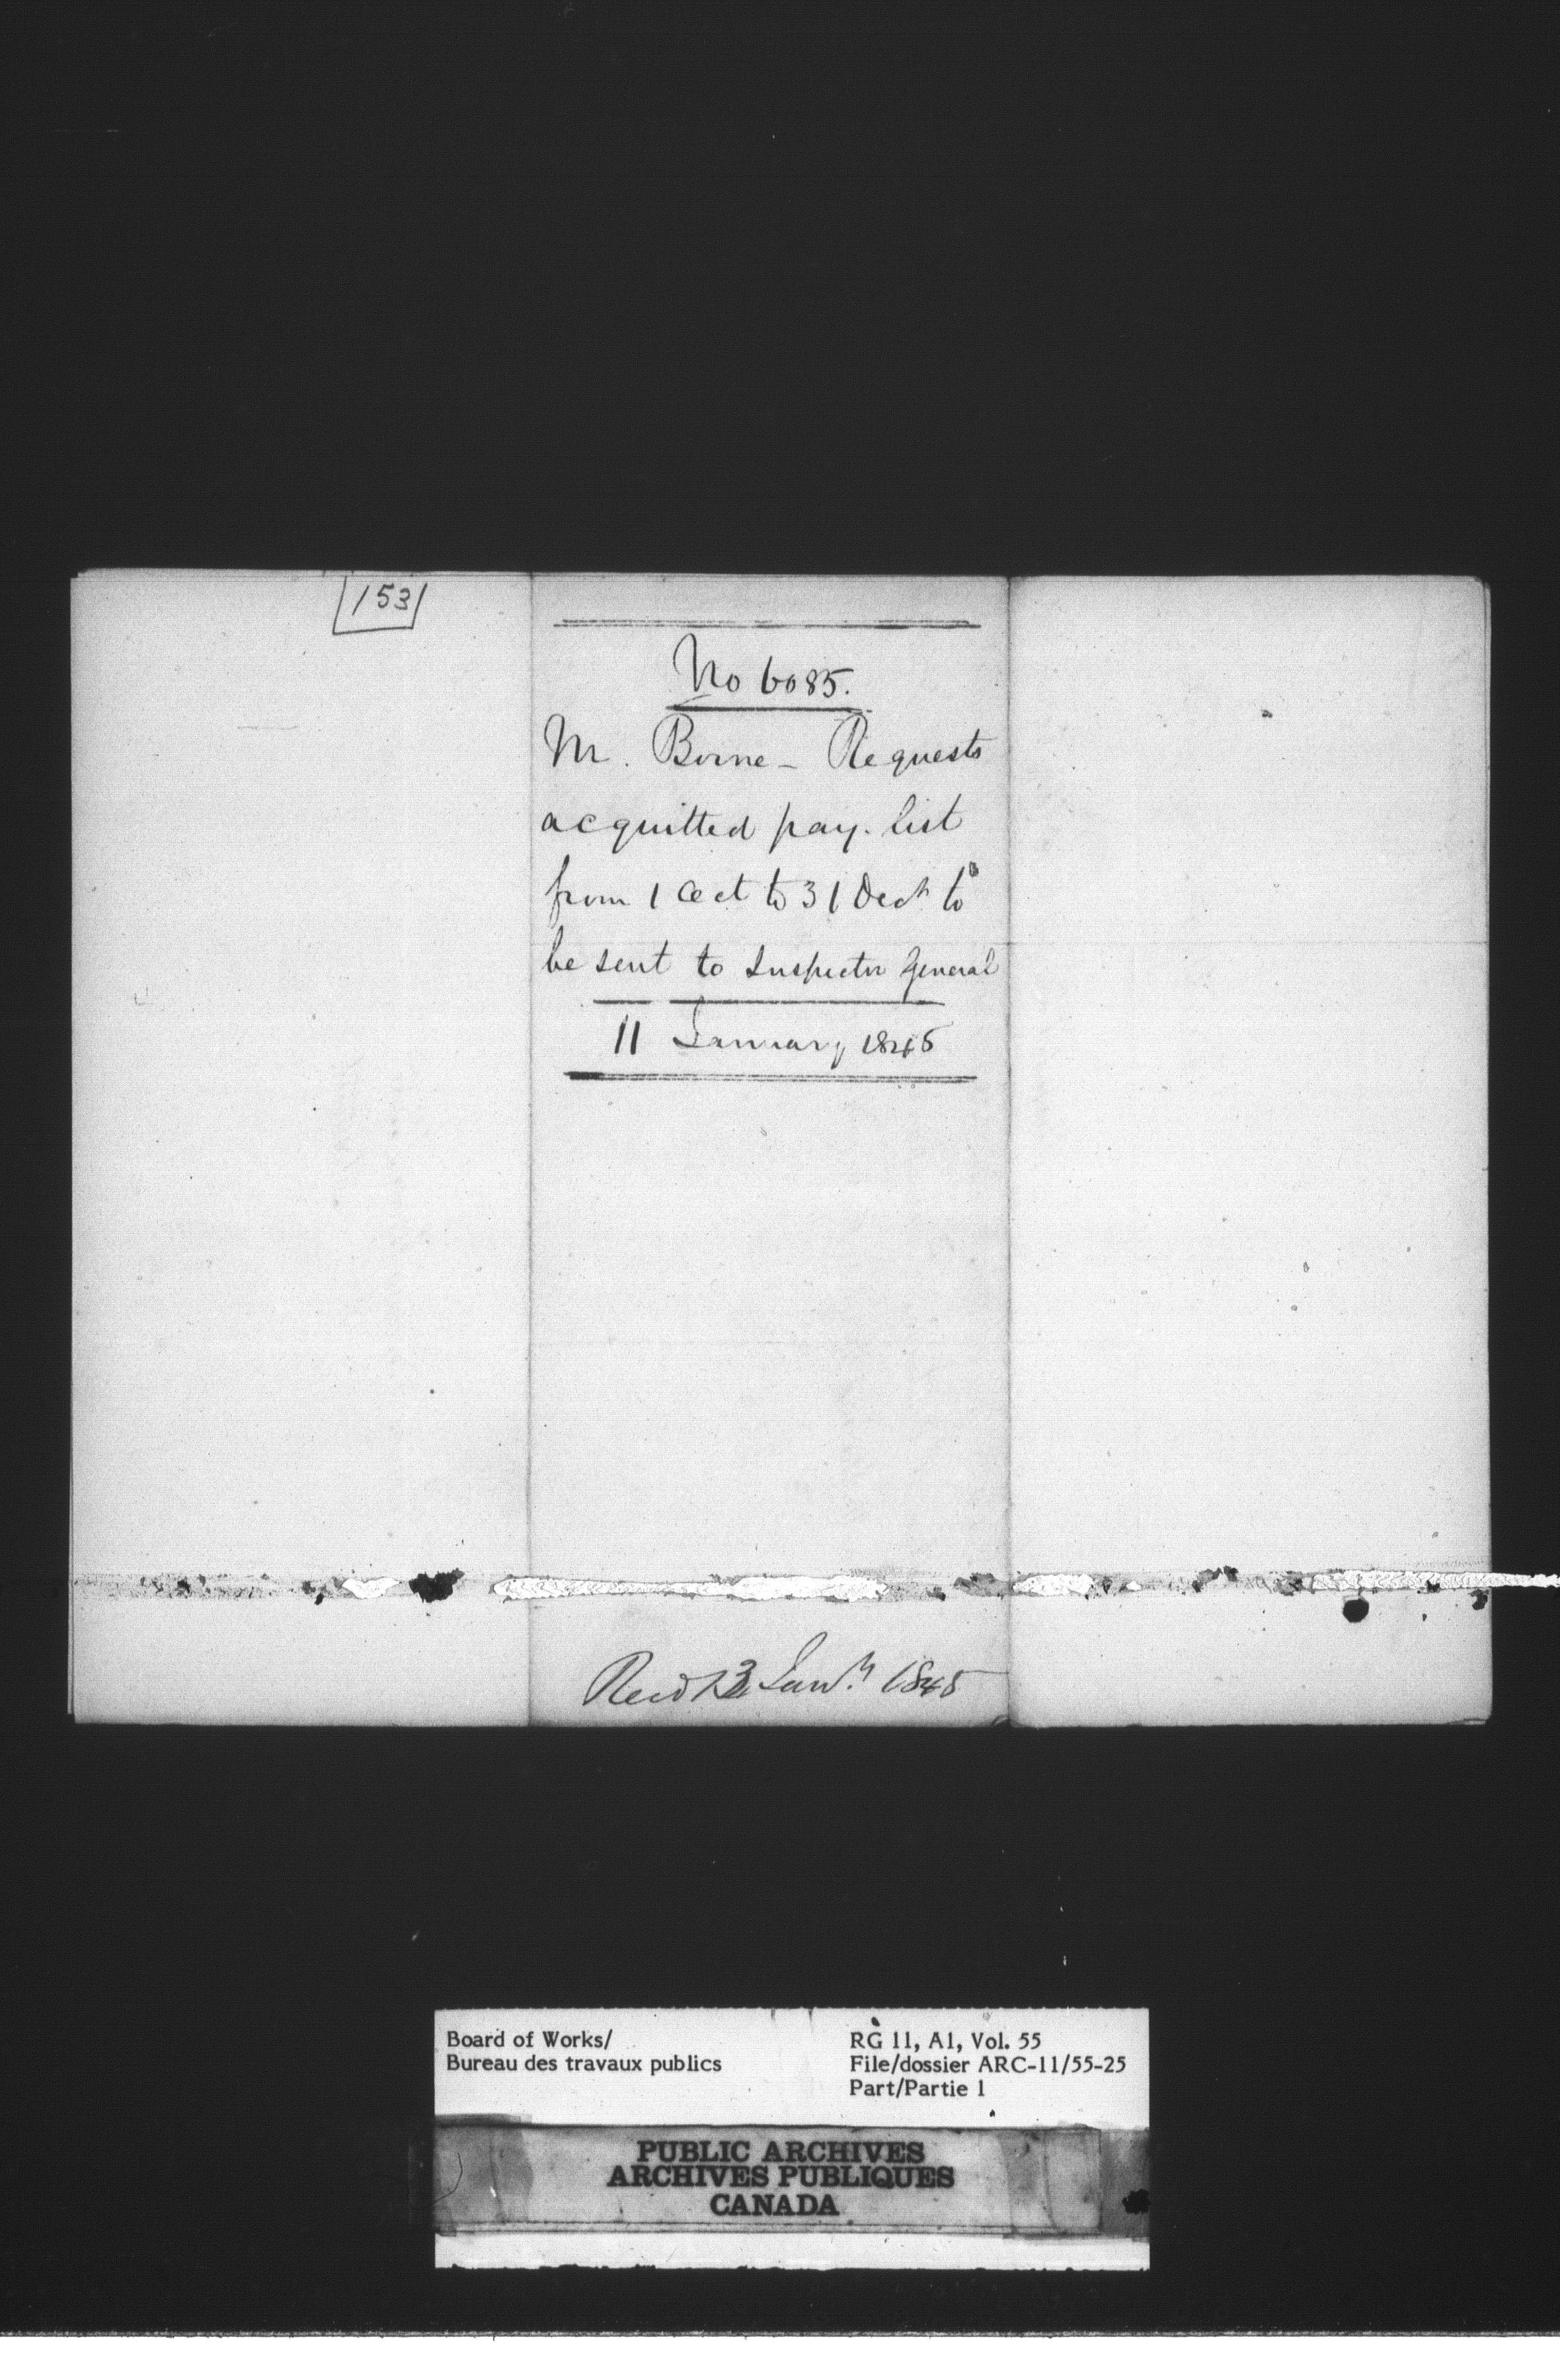 153
No 6085.
M. Borne - Requests
acquitted pay. list
from 1 Oct to 31 Decr to
be sent to Inspector General
11 January 1845
Recd 13 Jany. 1845
Board of Works/
Bureau des travaux publics
RG 11, A1, Vol. 55
File/dossier ARC-11/55-25
Part/Partie 1
PUBLIC ARCHIVES
ARCHIVES PUBLIQUES
CANADA